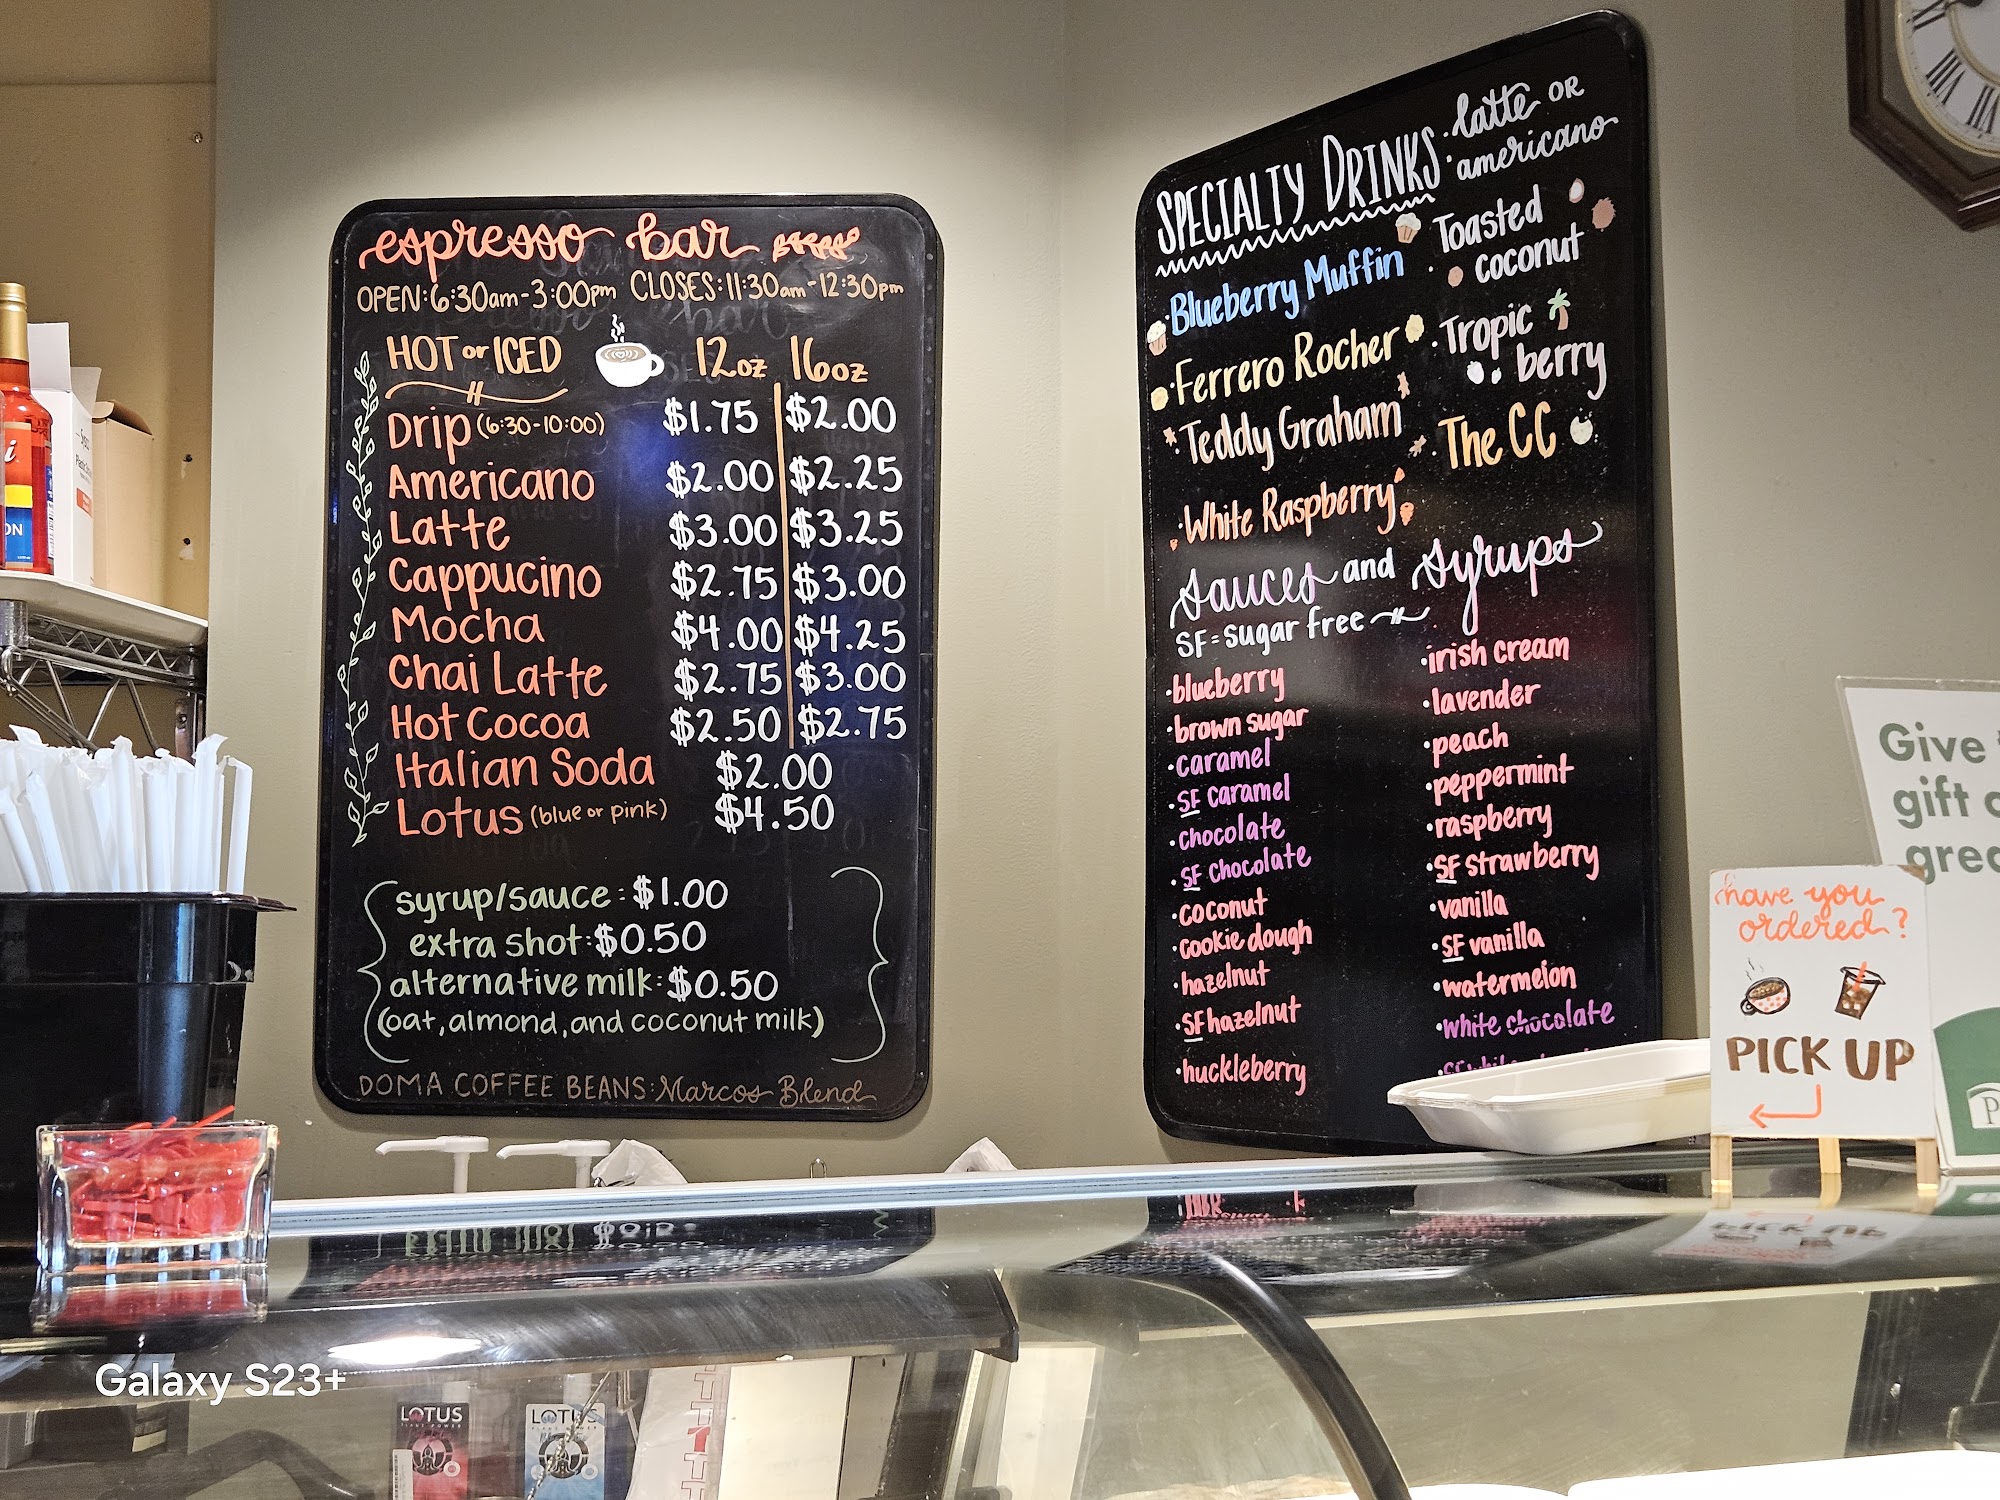 espresso bar
OPEN: 6:30am-3:00pm CLOSES: 11:30am-12:30pm
HOT or ICED 12oz 16oz
Drip (6:30-10:00) $1.75 $2.00
Americano $2.00 $2.25
Latte $3.00 $3.25
Cappucino $2.75 $3.00
Mocha $4.00 $4.25
Chai Latte $2.75 $3.00
Hot Cocoa $2.50 $2.75
Italian Soda $2.00
Lotus (blue or pink) $4.50
syrup/sauce: $1.00
extra shot: $0.50
alternative milk: $0.50
(oat, almond, and coconut milk)
DOMA COFFEE BEANS: Marcos Blend
SPECIALTY DRINKS
·latte OR
·americano
·Blueberry Muffin
·Ferrero Rocher
·Teddy Graham
·White Raspberry
·Toasted
coconut
·Tropic
berry
·The CC
sauces and syrups
SF = sugar free
·blueberry
·brown sugar
·caramel
·SF caramel
·chocolate
·SF chocolate
·coconut
·cookie dough
·hazelnut
·SF hazelnut
·huckleberry
·irish cream
·lavender
·peach
·peppermint
·raspberry
·SF strawberry
·vanilla
·SF vanilla
·watermelon
·white chocolate
Give
gift
have you
ordered?
PICK UP
LOTUS
LOTUS
Galaxy S23+